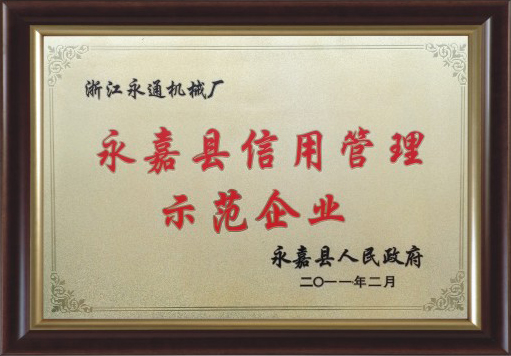 浙江永通机械厂
永嘉县信用管理
示范企业
永嘉县人民政府
二〇一一年二月